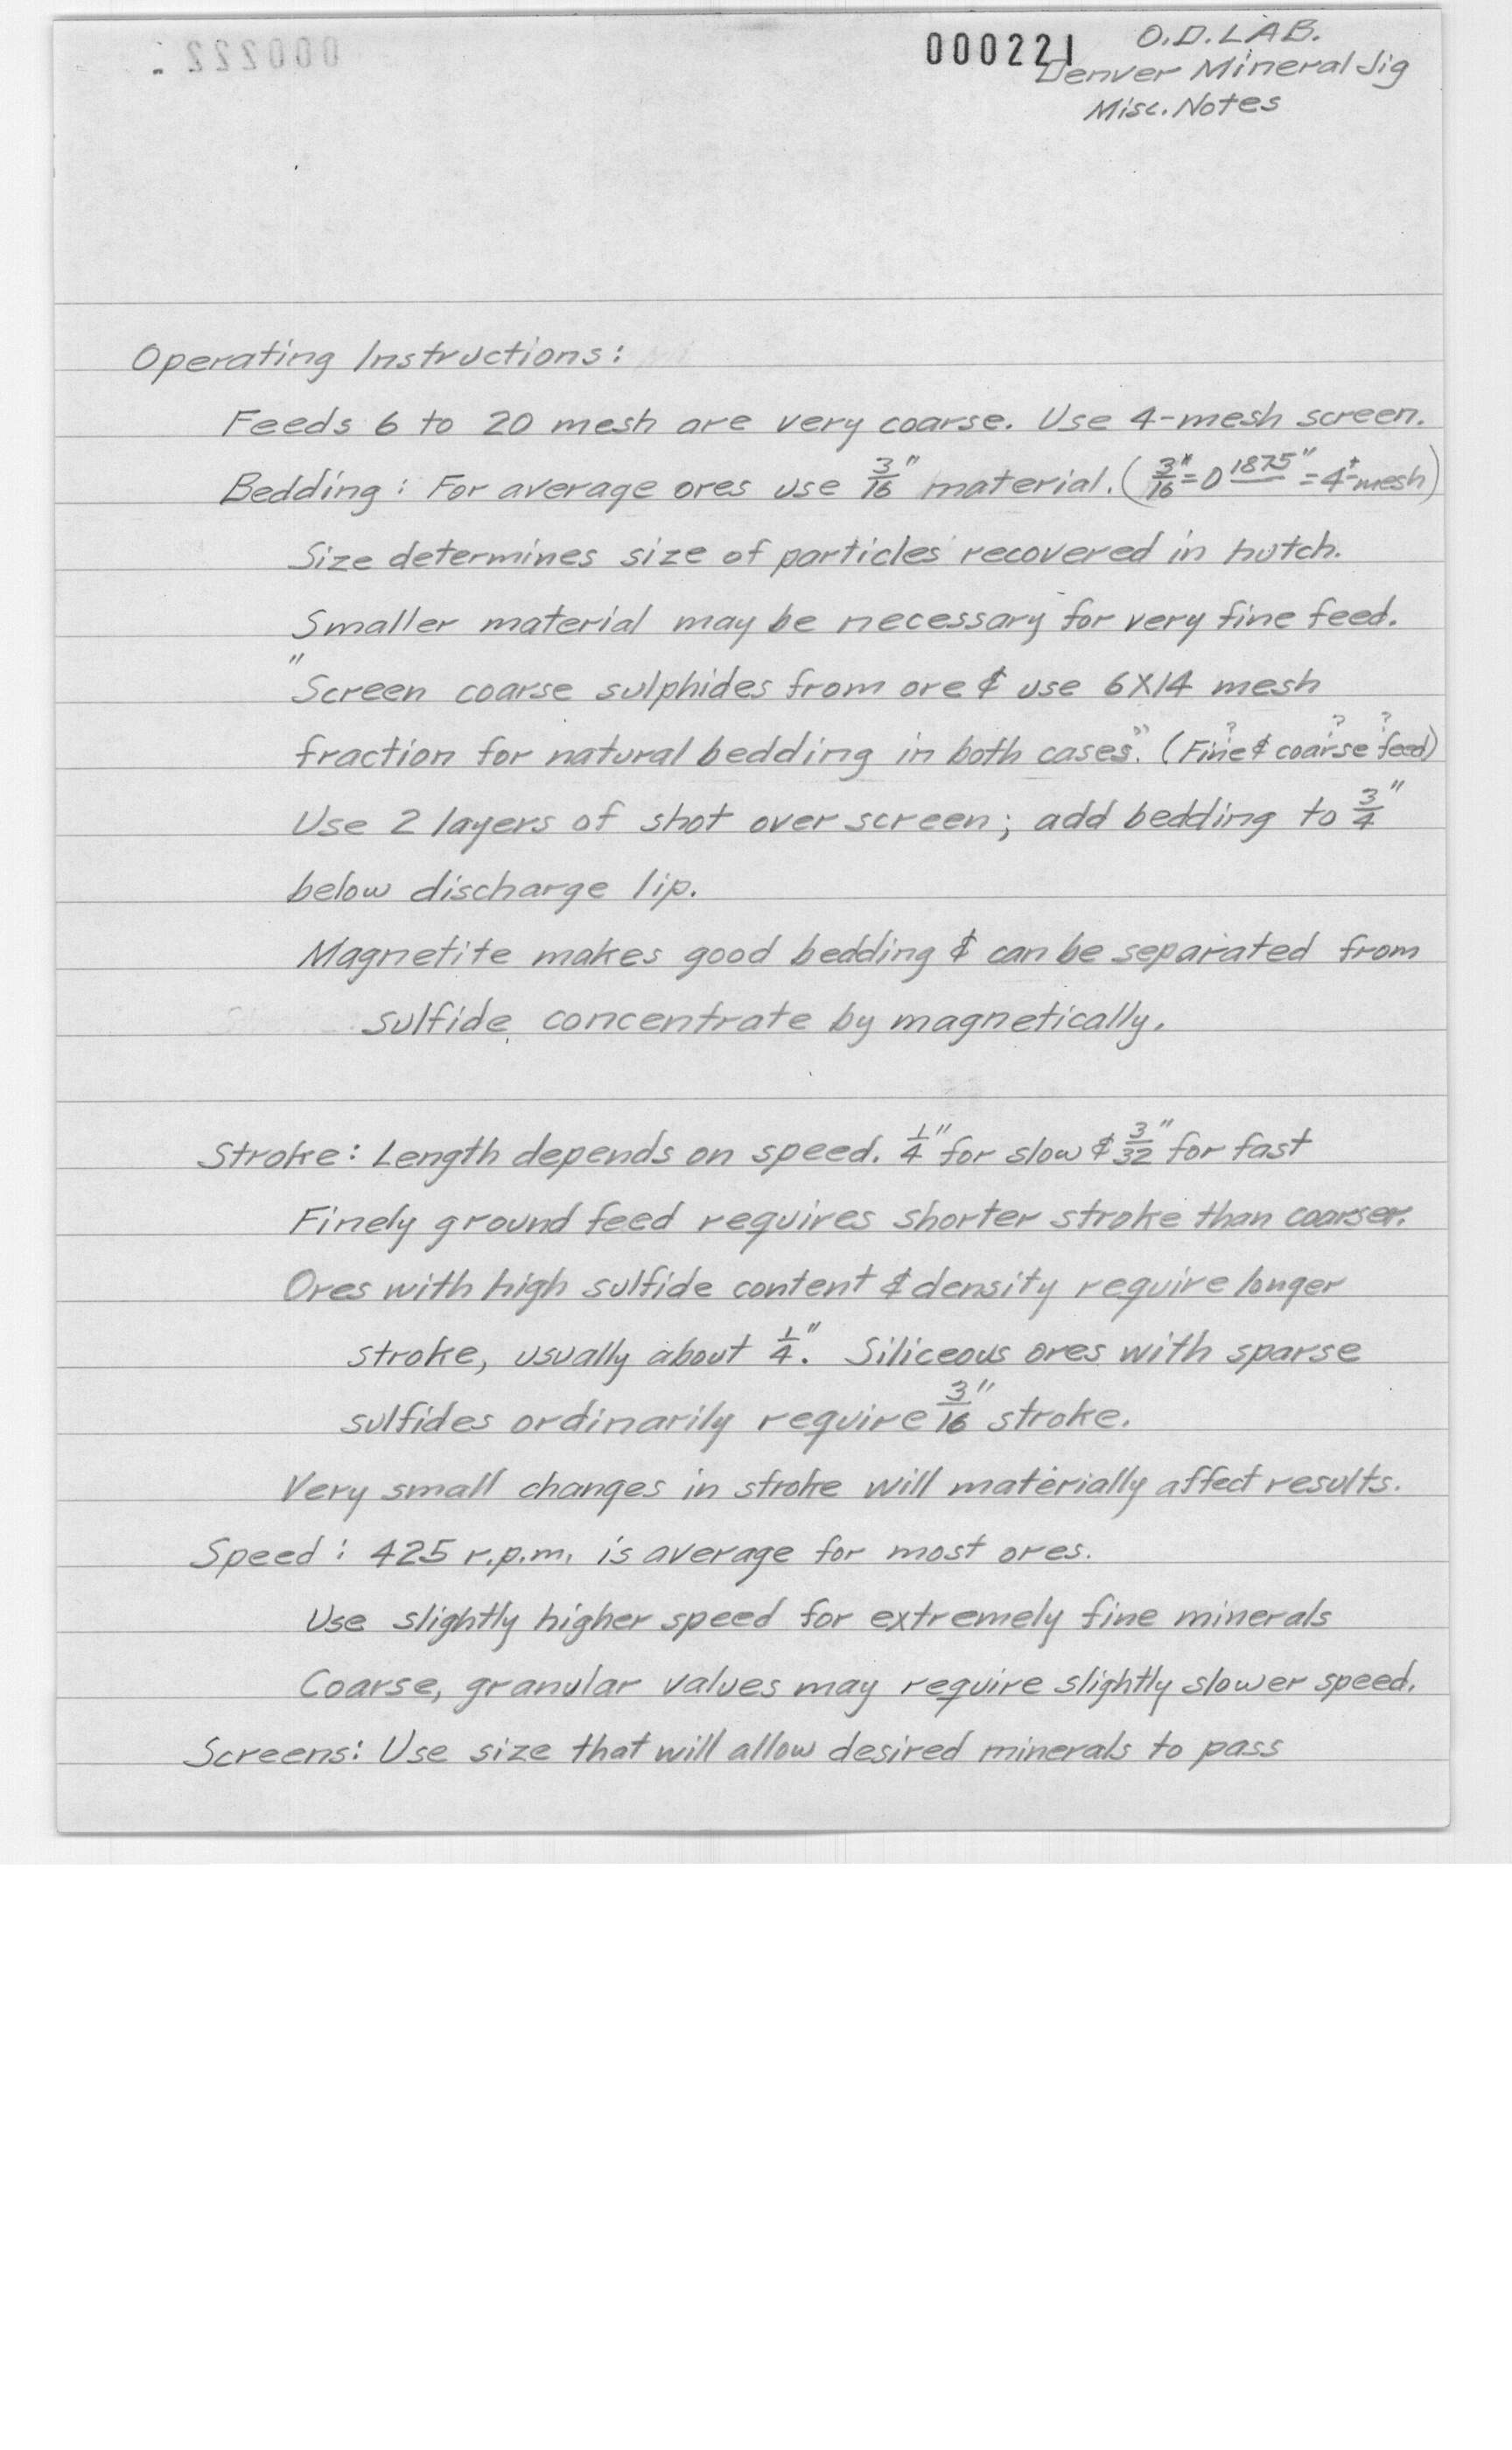 000222
000221 O.D. LAB.
Denver Mineral Jig
Misc. Notes
Operating Instructions:
Feeds 6 to 20 mesh are very coarse. Use 4-mesh screen.
Bedding: For average ores use 3/16" material. (3/16" = 0 1875" = 4± mesh)
Size determines size of particles recovered in hutch.
Smaller material may be necessary for very fine feed.
"Screen coarse sulphides from ore & use 6X14 mesh
fraction for natural bedding in both cases". (Fine? & coarse? feed?)
Use 2 layers of shot over screen; add bedding to 3/4"
below discharge lip.
Magnetite makes good bedding & can be separated from
sulfide concentrate by magnetically.
Stroke: Length depends on speed. 1/4" for slow & 3/32" for fast
Finely ground feed requires shorter stroke than coarser.
Ores with high sulfide content & density require longer
stroke, usually about 1/4". Siliceous ores with sparse
sulfides ordinarily require 3/16" stroke.
Very small changes in stroke will materially affect results.
Speed: 425 r.p.m. is average for most ores.
Use slightly higher speed for extremely fine minerals
Coarse, granular values may require slightly slower speed.
Screens: Use size that will allow desired minerals to pass